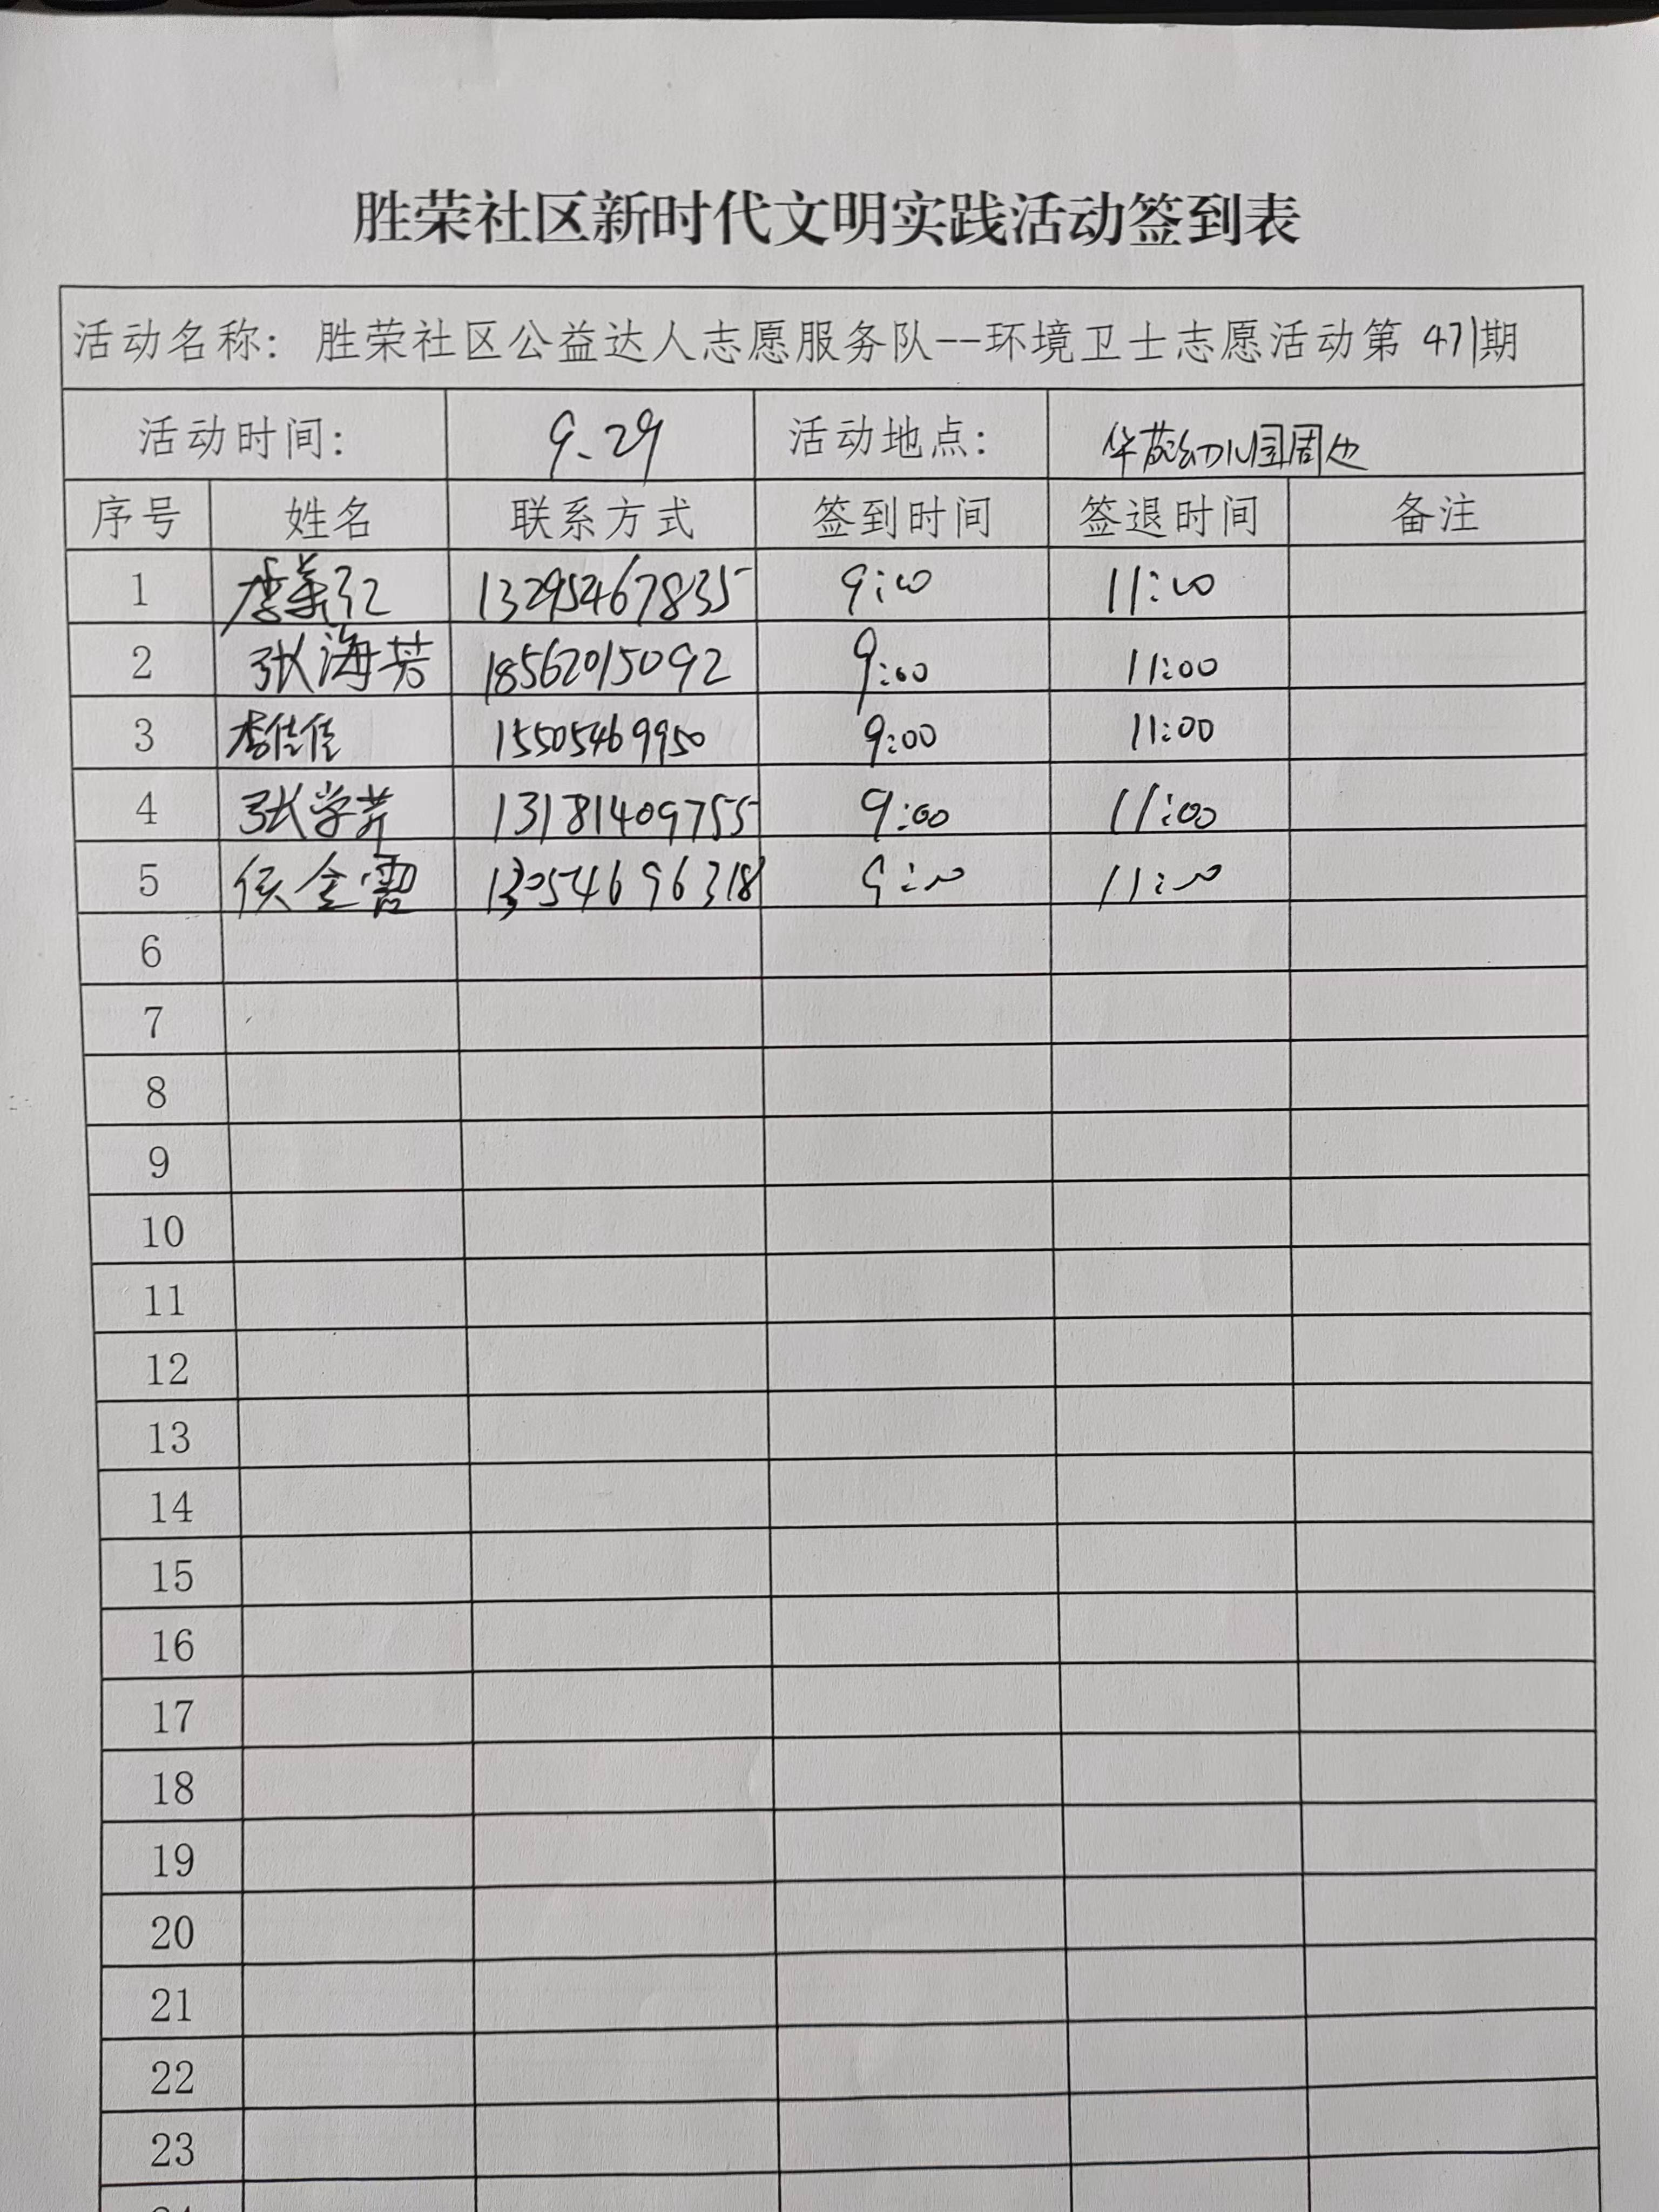 胜荣社区新时代文明实践活动签到表
活动名称：胜荣社区公益达人志愿服务队--环境卫士志愿活动第471期
活动时间： 9.29 活动地点： 华苑幼儿园周边
序号 姓名 联系方式 签到时间 签退时间 备注
1 李美红 13295467835 9:00 11:00
2 张海芳 18562015092 9:00 11:00
3 李佳佳 15505469950 9:00 11:00
4 张学芹 13181409755 9:00 11:00
5 侯金雷 13054696318 9:00 11:00
6
7
8
9
10
11
12
13
14
15
16
17
18
19
20
21
22
23